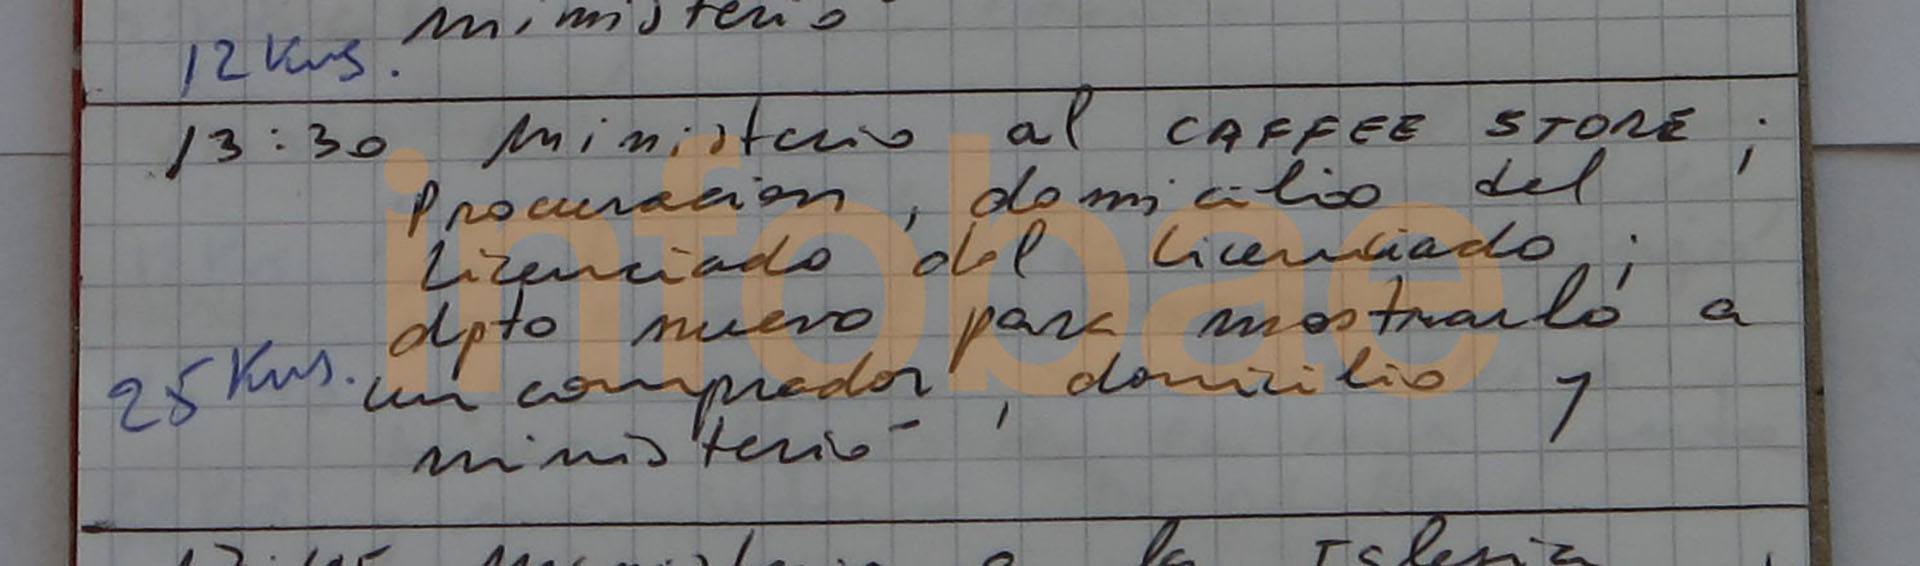 ministerio
12 Kms.
13:30 Ministerio al CAFFEE STORE;
Procuracion, domicilio del
Licenciado del Licenciado;
dpto nuevo para mostrarlo a
25 Kms. un comprador, domicilio y
ministerio-
Ministerio a la Iglesia,
infobae